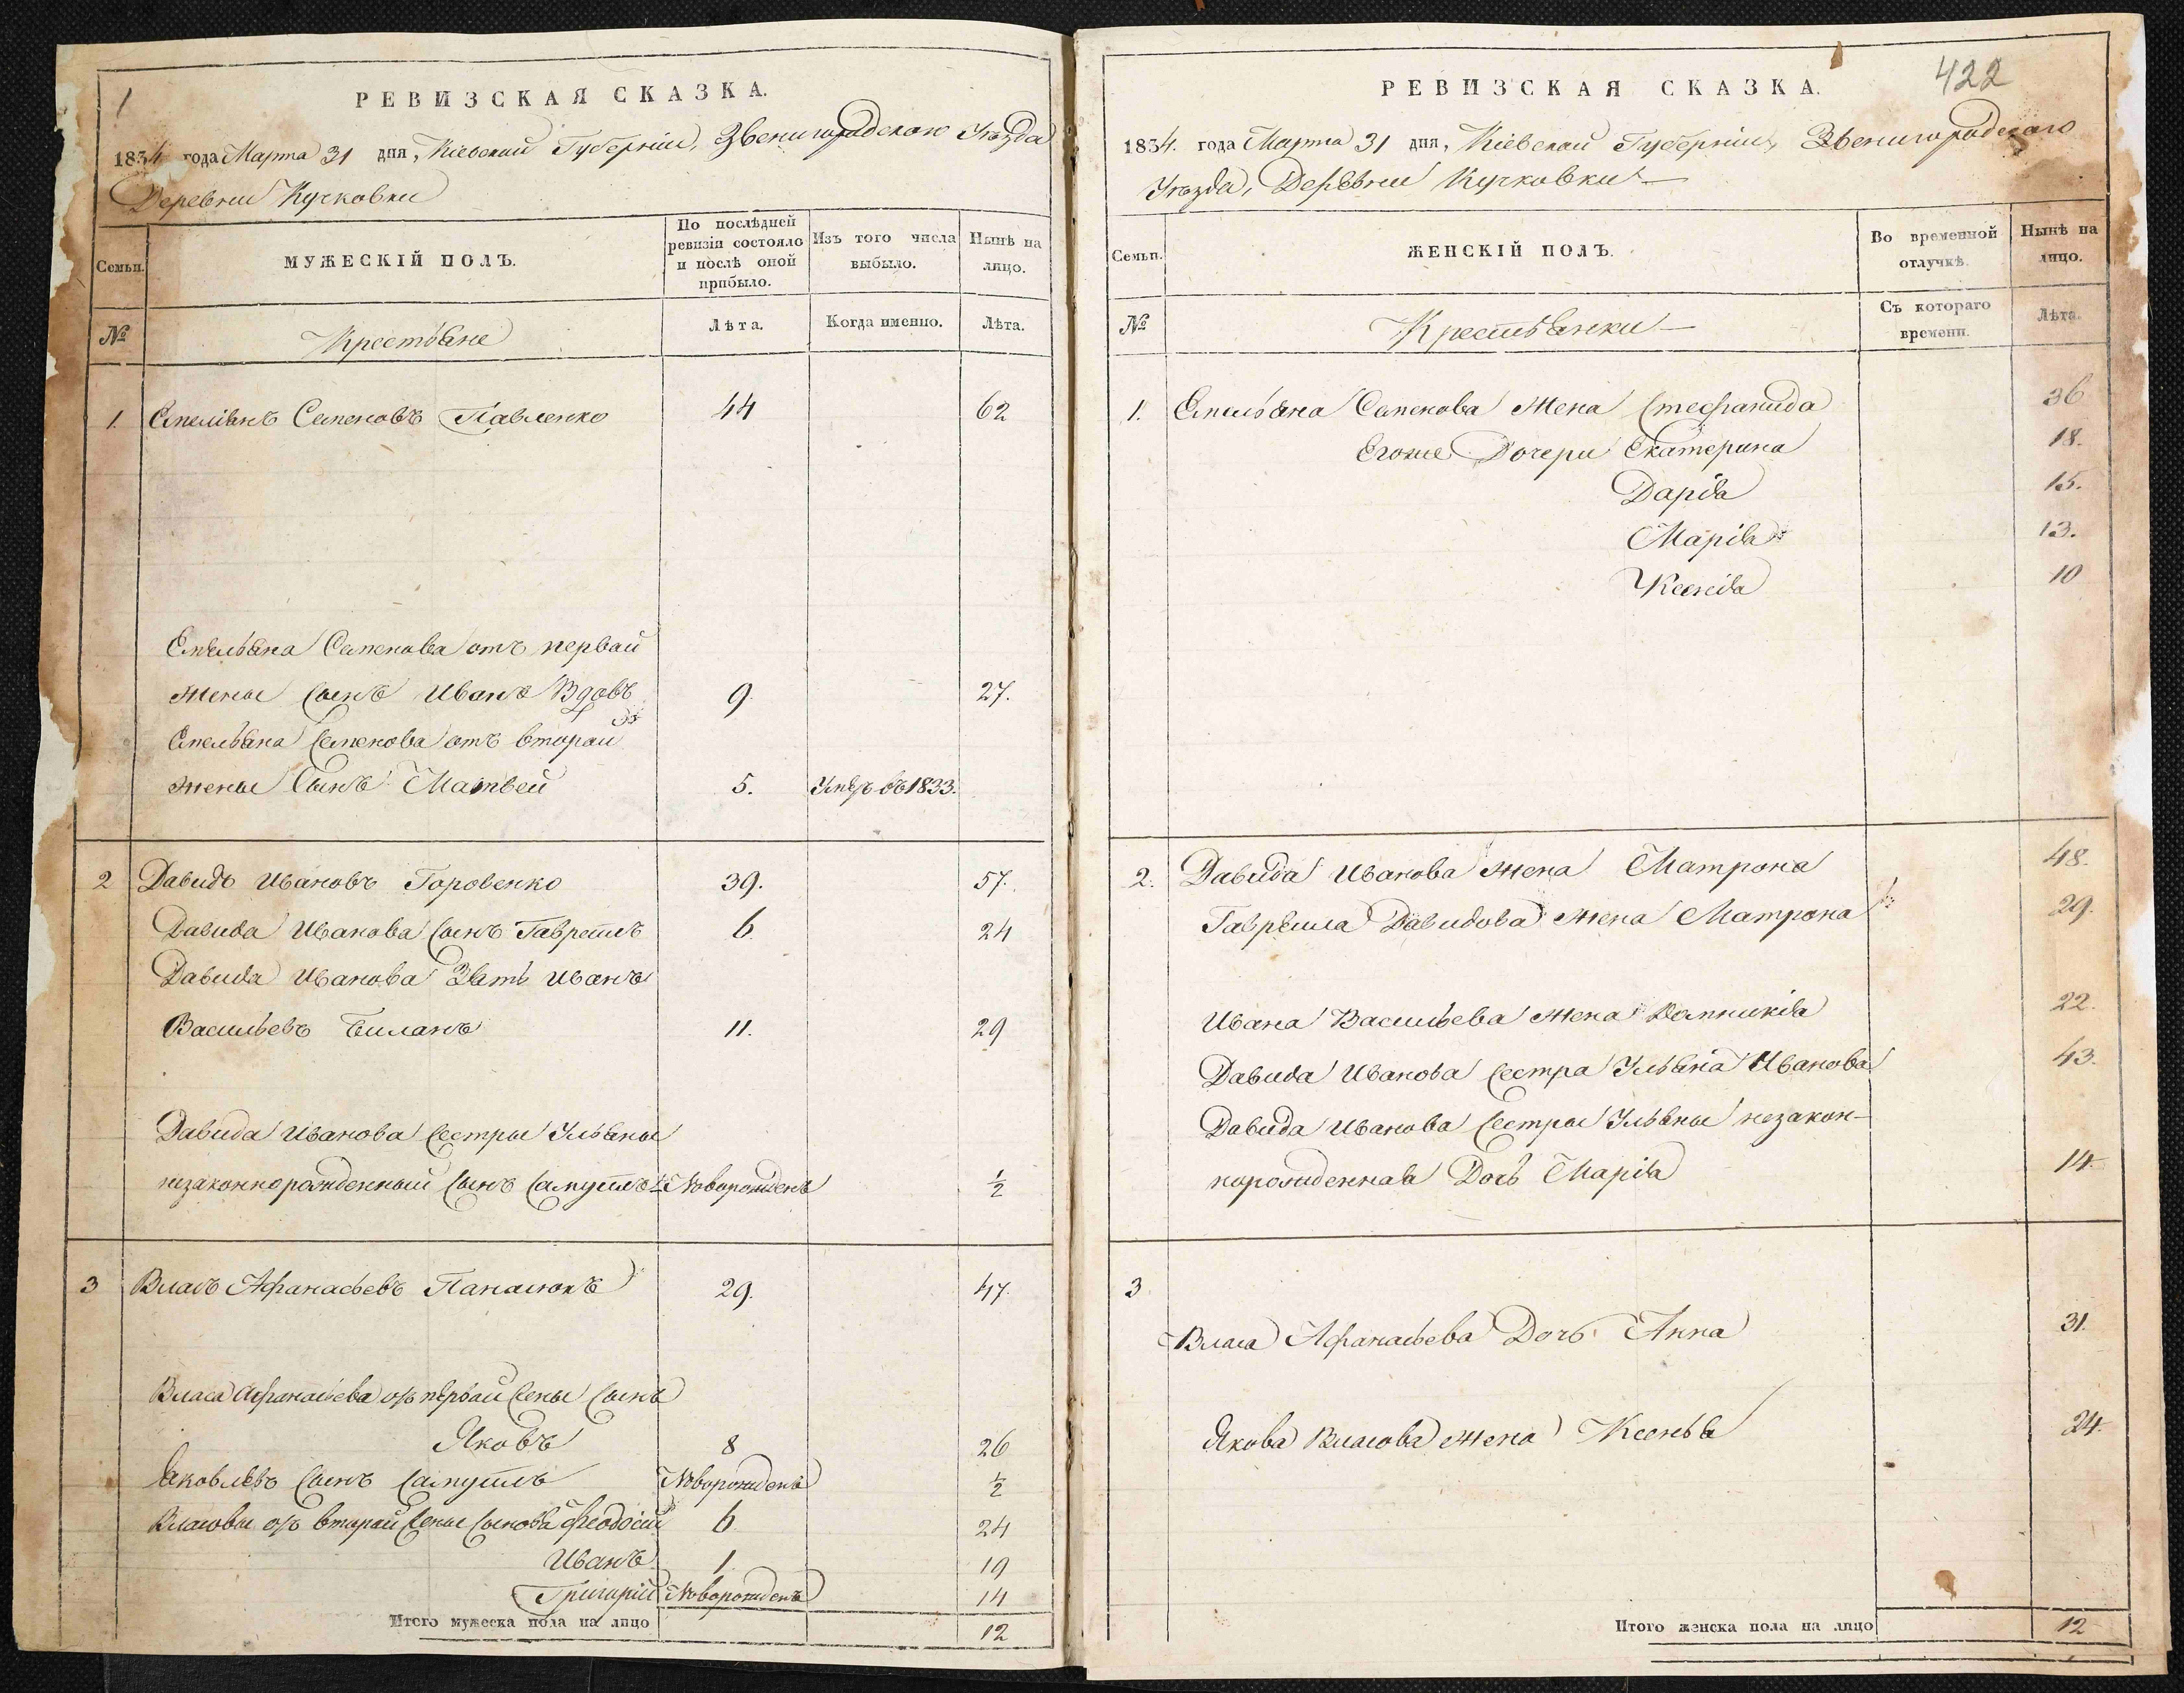 1
РЕВИЗСКАЯ СКАЗКА.
1834 года Марта 31 дня, Кіевской Губерніи, Звенигородского Уѣзда
Деревни Кучковки
Семьи.
МУЖЕСКІЙ ПОЛЪ.
По послѣдней ревизіи состояло и послѣ оной прибыло.
Изъ того числа выбыло.
Нынѣ на лицо.
№
Крестьяне
Лѣта.
Когда именно.
Лѣта.
1. Емельянъ Семеновъ Павленко 44 62
Емельяна Семенова отъ первой
жены сынъ Иванъ Вдовъ 9. 27.
Емельяна Семенова отъ второй
жены Сынъ Матвей 5. Умеръ въ 1833.
2 Давидъ Ивановъ Горовенко 39. 57.
Давида Иванова сынъ Гавріилъ 6 24
Давида Иванова Зять Иванъ
Васильевъ Биланъ 11. 29
Давида Иванова сестры Ульяны
незаконнорожденный сынъ Самуилъ Новорожденъ ½
3 Власъ Афанасьевъ Панасюкъ 29. 47.
Власа Афанасьева отъ первой жены сынъ
Яковъ 8 26
Яковлевъ сынъ Самуилъ Новорожденъ ½
Власовы отъ второй жены сыновья Феодосій 6 24
Иванъ 1 19
Григорій Новорожденъ 14
Итого мужеска пола на лицо 12
422
РЕВИЗСКАЯ СКАЗКА.
1834. года Марта 31 дня, Кіевской Губерніи, Звенигородского
Уѣзда, Деревни Кучковки
Семьи.
ЖЕНСКІЙ ПОЛЪ.
Во временной отлучкѣ.
Нынѣ на лицо.
№
Крестьянки
Съ котораго времени.
Лѣта.
1. Емельяна Семенова жена Стефанида 36
Егоже Дочери Екатерина 18.
Дарія 15.
Марія 13.
Ксенія 10
2. Давида Иванова жена Матрона 48.
Гавріила Давидова жена Матрона 29.
Ивана Васильева жена Домникія 22.
Давида Иванова сестра Ульяна Иванова 43.
Давида Иванова сестры Ульяны незакон-
норожденная Дочь Марія 14.
3
Власа Афанасьева Дочь Анна 31.
Якова Власова жена Ксенья 24.
Итого женска пола на лицо 12